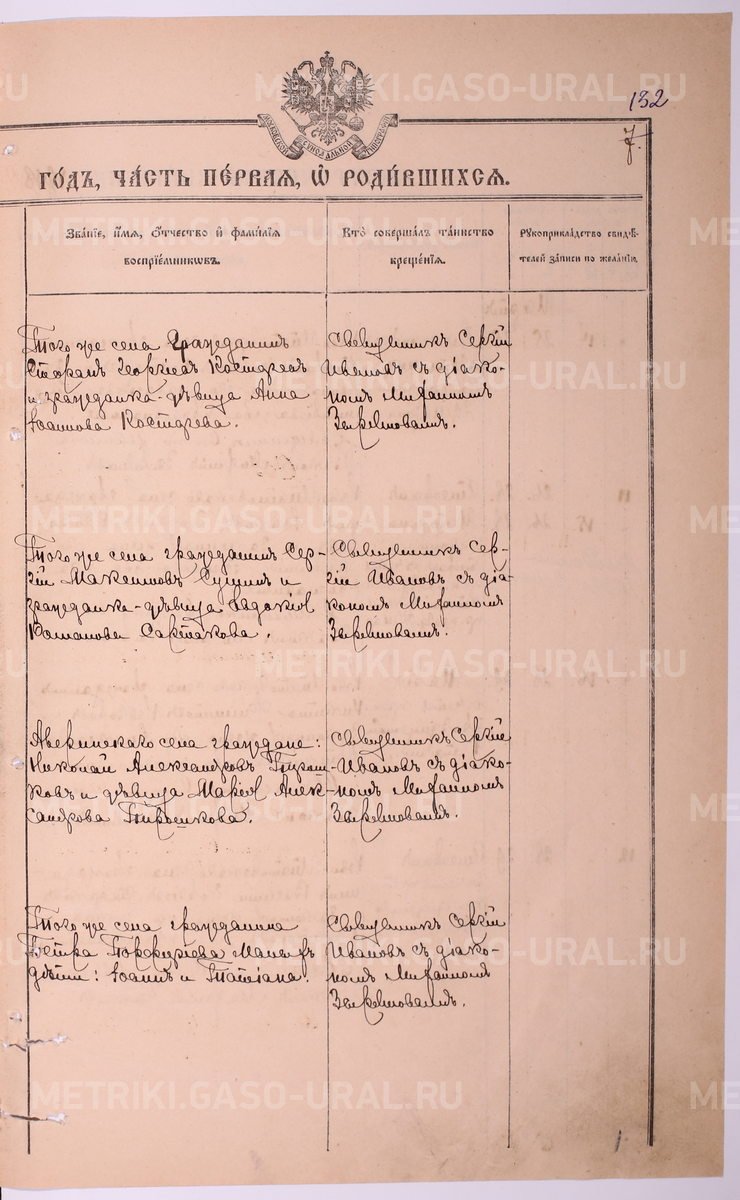 132
7
ГОДЪ, ЧАСТЬ ПЕРВАЯ, Ѡ РОДИВШИХСЯ.
Званіе, имя, отчество и фамилія
воспріемниковъ.
Кто совершалъ таинство
крещенія.
Рукоприкладство свидѣ-
телей записи по желанію.
Того же села Гражданинъ
Георгіевъ Костаревъ
и гражданка-дѣвица Анна
Іоаннова Костарева.
Священникъ Сергій
Ивановъ съ діако-
номъ
Того же села гражданинъ Сер-
гій Максимовъ и
гражданка-дѣвица Евдокія
Романова Сартакова.
Священникъ Сер-
гій Ивановъ съ діа-
кономъ
Аверинскаго села граждане:
Николай Александровъ
и дѣвица Марія Алек-
сандрова
Священникъ Сергій
Ивановъ съ діако-
номъ
Того же села гражданина
Петра Порфиріева
дѣти: Іоаннъ и Татіана.
Священникъ Сергій
Ивановъ съ діако-
номъ
METRIKI.GASO-URAL.RU